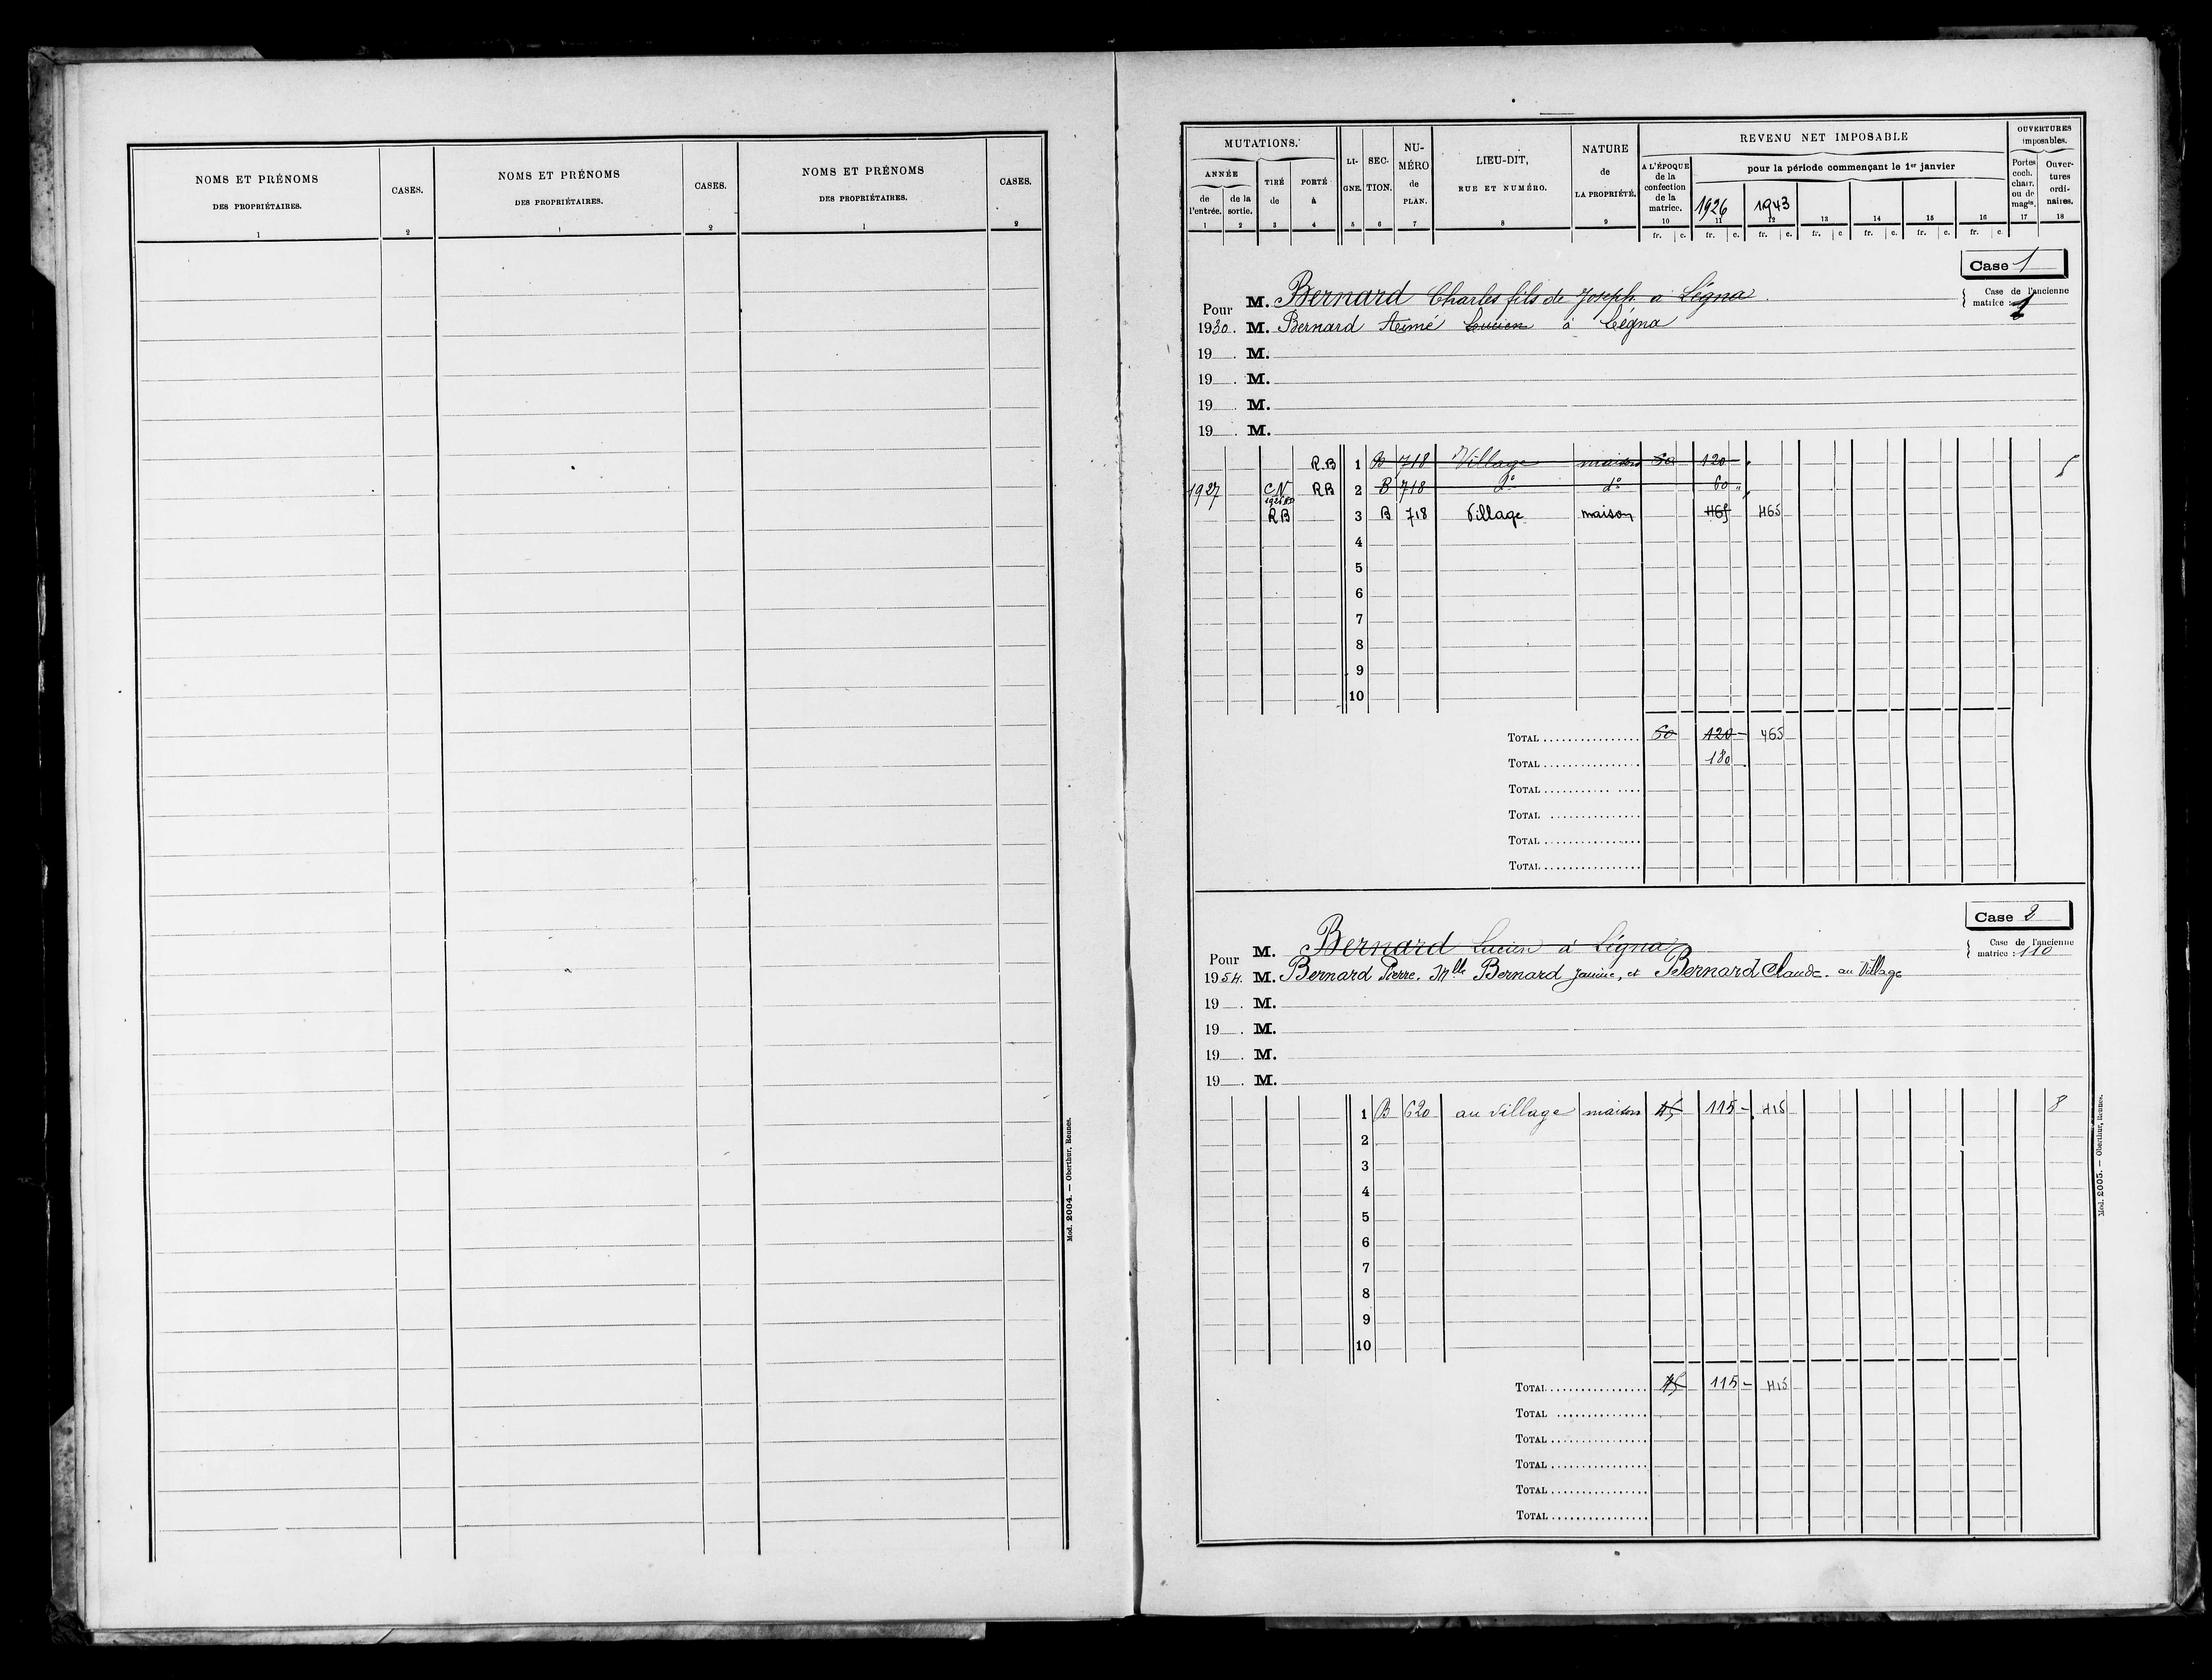 NOMS ET PRÉNOMS
DES PROPRIÉTAIRES.
1
CASES.
2
NOMS ET PRÉNOMS
DES PROPRIÉTAIRES.
1
CASES.
2
NOMS ET PRÉNOMS
DES PROPRIÉTAIRES.
1
CASES.
2
Mod. 2004. — Oberthur, Rennes.
MUTATIONS.
ANNÉE
de l'entrée.
de la sortie.
TIRÉ de
PORTÉ à
LIGNE.
SECTION.
NUMÉRO de PLAN.
LIEU-DIT,
RUE ET NUMÉRO.
NATURE
de
LA PROPRIÉTÉ.
REVENU NET IMPOSABLE
A L'ÉPOQUE de la confection de la matrice.
pour la période commençant le 1er janvier
1926 1943
OUVERTURES imposables.
Portes coch. charr. ou de magns.
Ouvertures ordinaires.
1 2 3 4 5 6 7 8 9 10 11 12 13 14 15 16 17 18
fr. c. fr. c. fr. c. fr. c fr. c. fr. c. fr. c.
Case 1
Pour M. Bernard Charles fils de Joseph à Légna
Case de l'ancienne matrice : 1
1930. M. Bernard Aimé Lucien à Légna
19 . M.
19 . M.
19 . M.
19 . M.
R.B 1 B 718 Village maison 60 120 - 5
1927 CN RB 2 B 718 do do 60
RB 3 B 718 Village maison 465 465
4
5
6
7
8
9
10
TOTAL 60 120 - 465
TOTAL 180
TOTAL
TOTAL
TOTAL
TOTAL
Case 2
Pour M. Bernard Lucien à Légna
Case de l'ancienne matrice : 110
1954. M. Bernard Pierre. Mlle Bernard Janine, et Bernard Claude. au Village
19 . M.
19 . M.
19 . M.
19 . M.
1 B 620 au village maison 45 115 - 415 8
2
3
4
5
6
7
8
9
10
TOTAL 45 115 - 415
TOTAL
TOTAL
TOTAL
TOTAL
TOTAL
Mod. 2005. — Oberthur, Rennes.